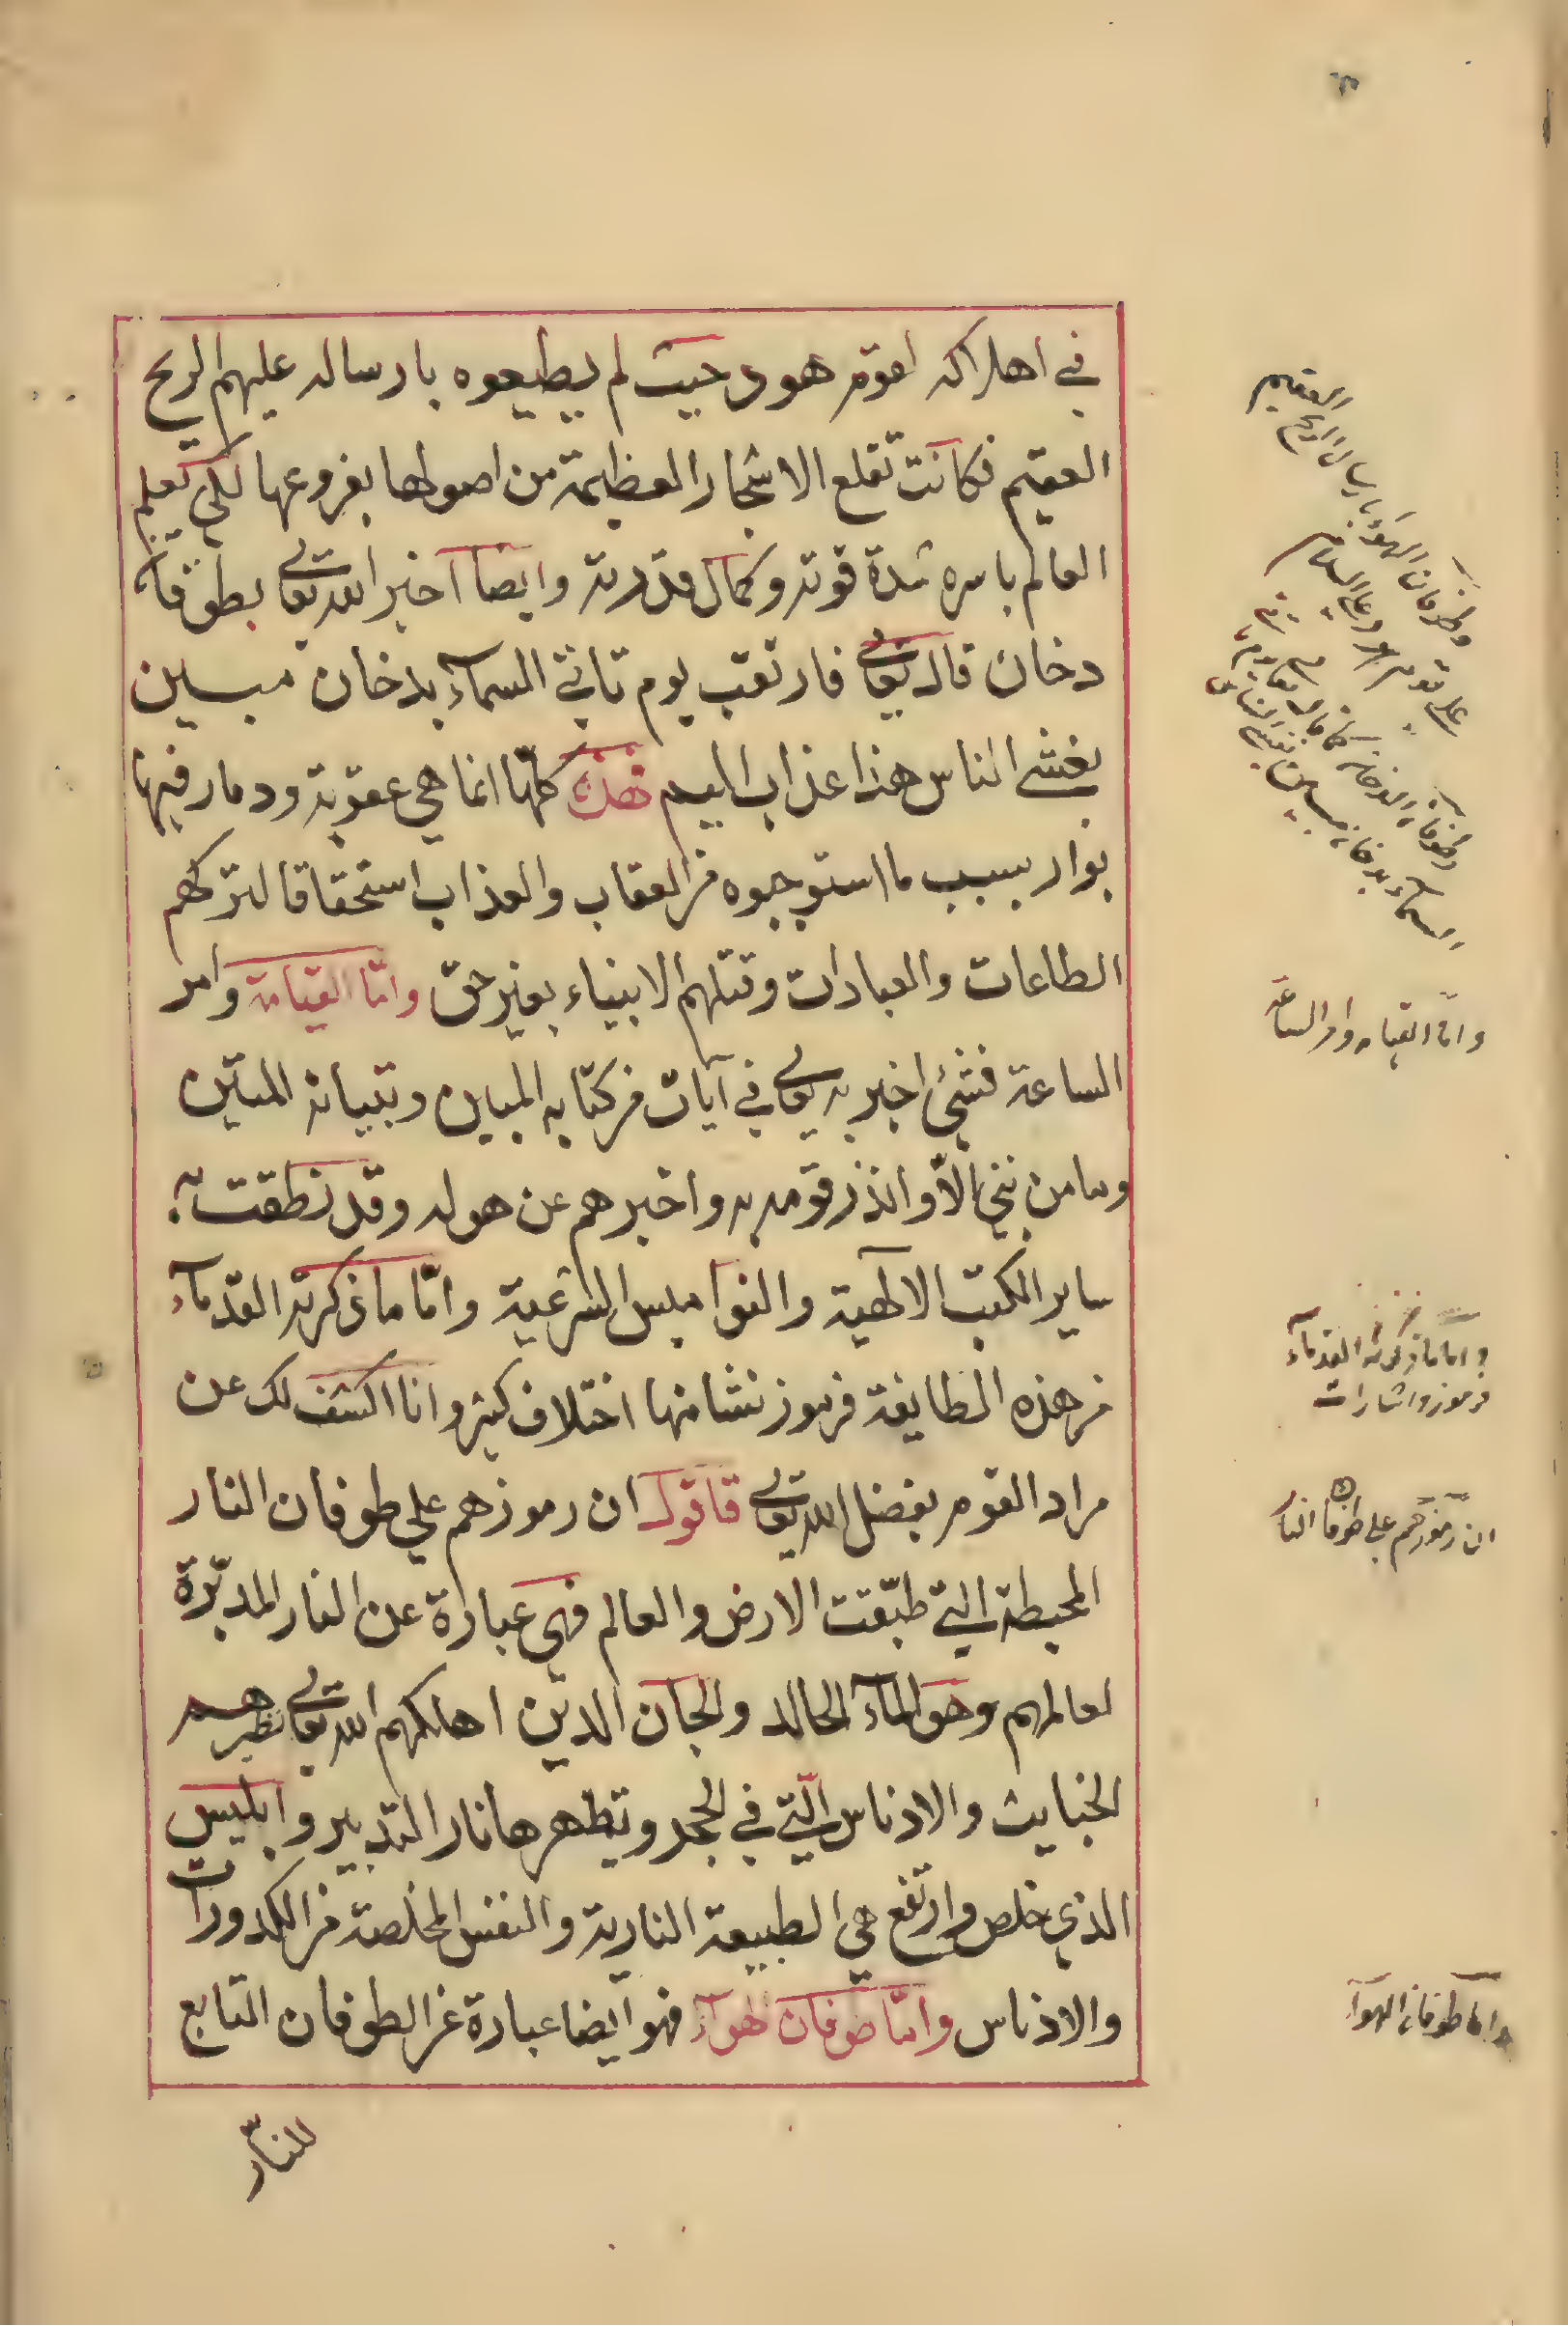 في اهلاكه لقوم هود حيث لم يطيعوه بارساله عليهم الريح
العقيم فكانت تقلع الاشجار العظيمة من اصولها بفروعها لكي يعلم
العالم باسره شدة قوته وكمال قدرته وايضا اخبر الله تعالى بطوفان
دخان قال تعالى فارتقب يوم تاتي السمآء بدخان مبين
يغشى الناس هذا عذاب اليم فهذه كلها انما هي عقوبة ودمار فيها
بوار بسبب ما استوجبوه من العقاب والعذاب استحقاقا لتركهم
الطاعات والعبادات وقتلهم الانبياء بغير حق واما القيامة وامر
الساعة فشئ اخبر به تعالى في آيات من كتابه المبين وتبيانه المتين
وما من نبي الا وانذر قومه به واخبرهم عن هوله وقد نطقت به
ساير الكتب الالهية والنواميس الشرعية واما ما ذكرته القدمآء
من هذه الطايفة من رموز نشا منها اختلاف كثير وانا اكشف لك عن
مراد القوم بفضل الله تعالى فاقول ان رموزهم على طوفان النار
المحيطة التي طبقت الارض والعالم فهي عبارة عن النار المدبرة
لعالمهم وهو المآء الخالد والجان الذين اهلكهم الله تعالى
الخبايث والادناس التي في الحجر وتطهرها نار التدبير وابليس
الذي خلص وارتفع هي الطبيعة النارية والنفس المخلصة من الكدورات
والادناس واما طوفان الهوآء فهو ايضا عبارة عن الطوفان التابع
للنار
وطوفان الهوآء بارسال الريح العقيم
على قوم هود عليه السلام
وطوفان الدخان كما قال تعالى يوم تاتي
السمآء بدخان مبين يغشى الناس
واما القيامه وامر الساعة
واما ما ذكرته القدمآء
من رموز واشارات
ان رموزهم على طوفان النار
واما طوفان الهوآء